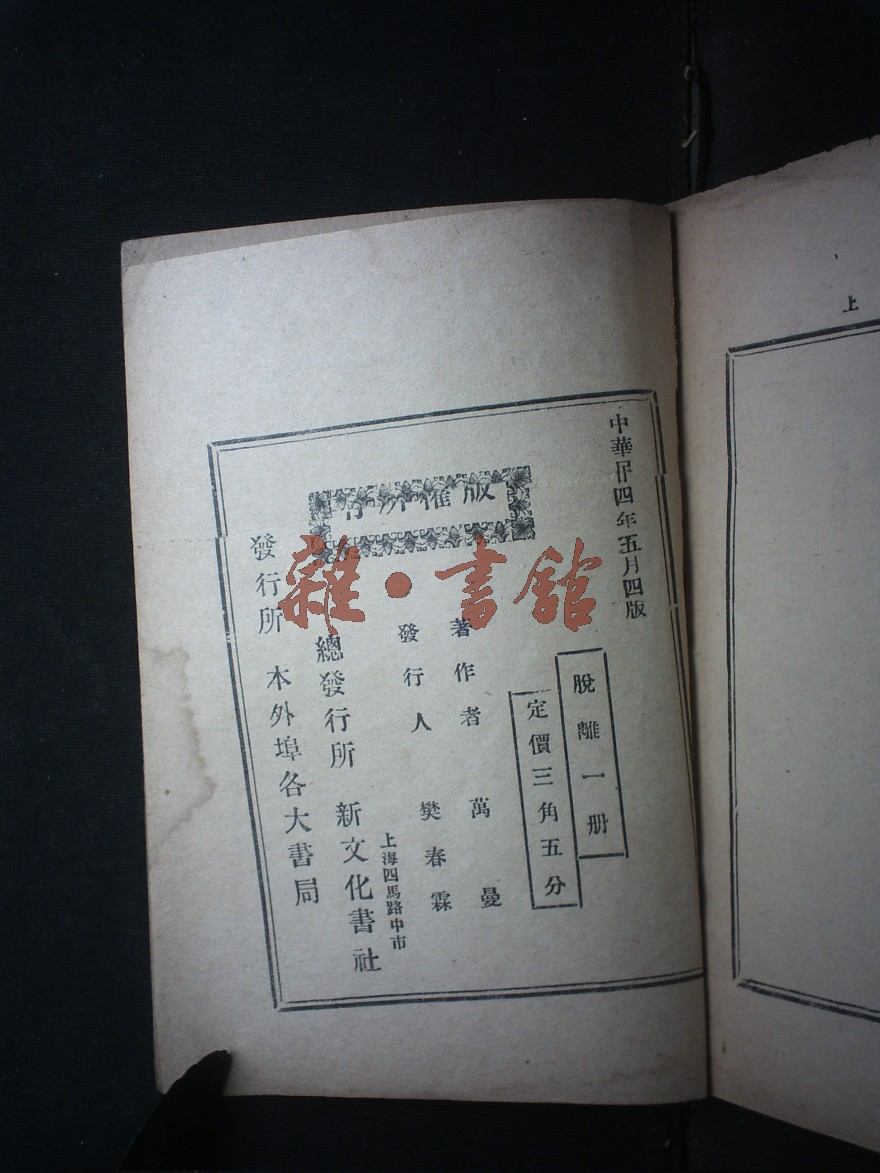 上
中華廿四年五月四版
脫離一册
定價三角五分
版權所有
著作者 萬曼
發行人 樊春霖
上海四馬路中市
總發行所 新文化書社
發行所 本外埠各大書局
雜·書館